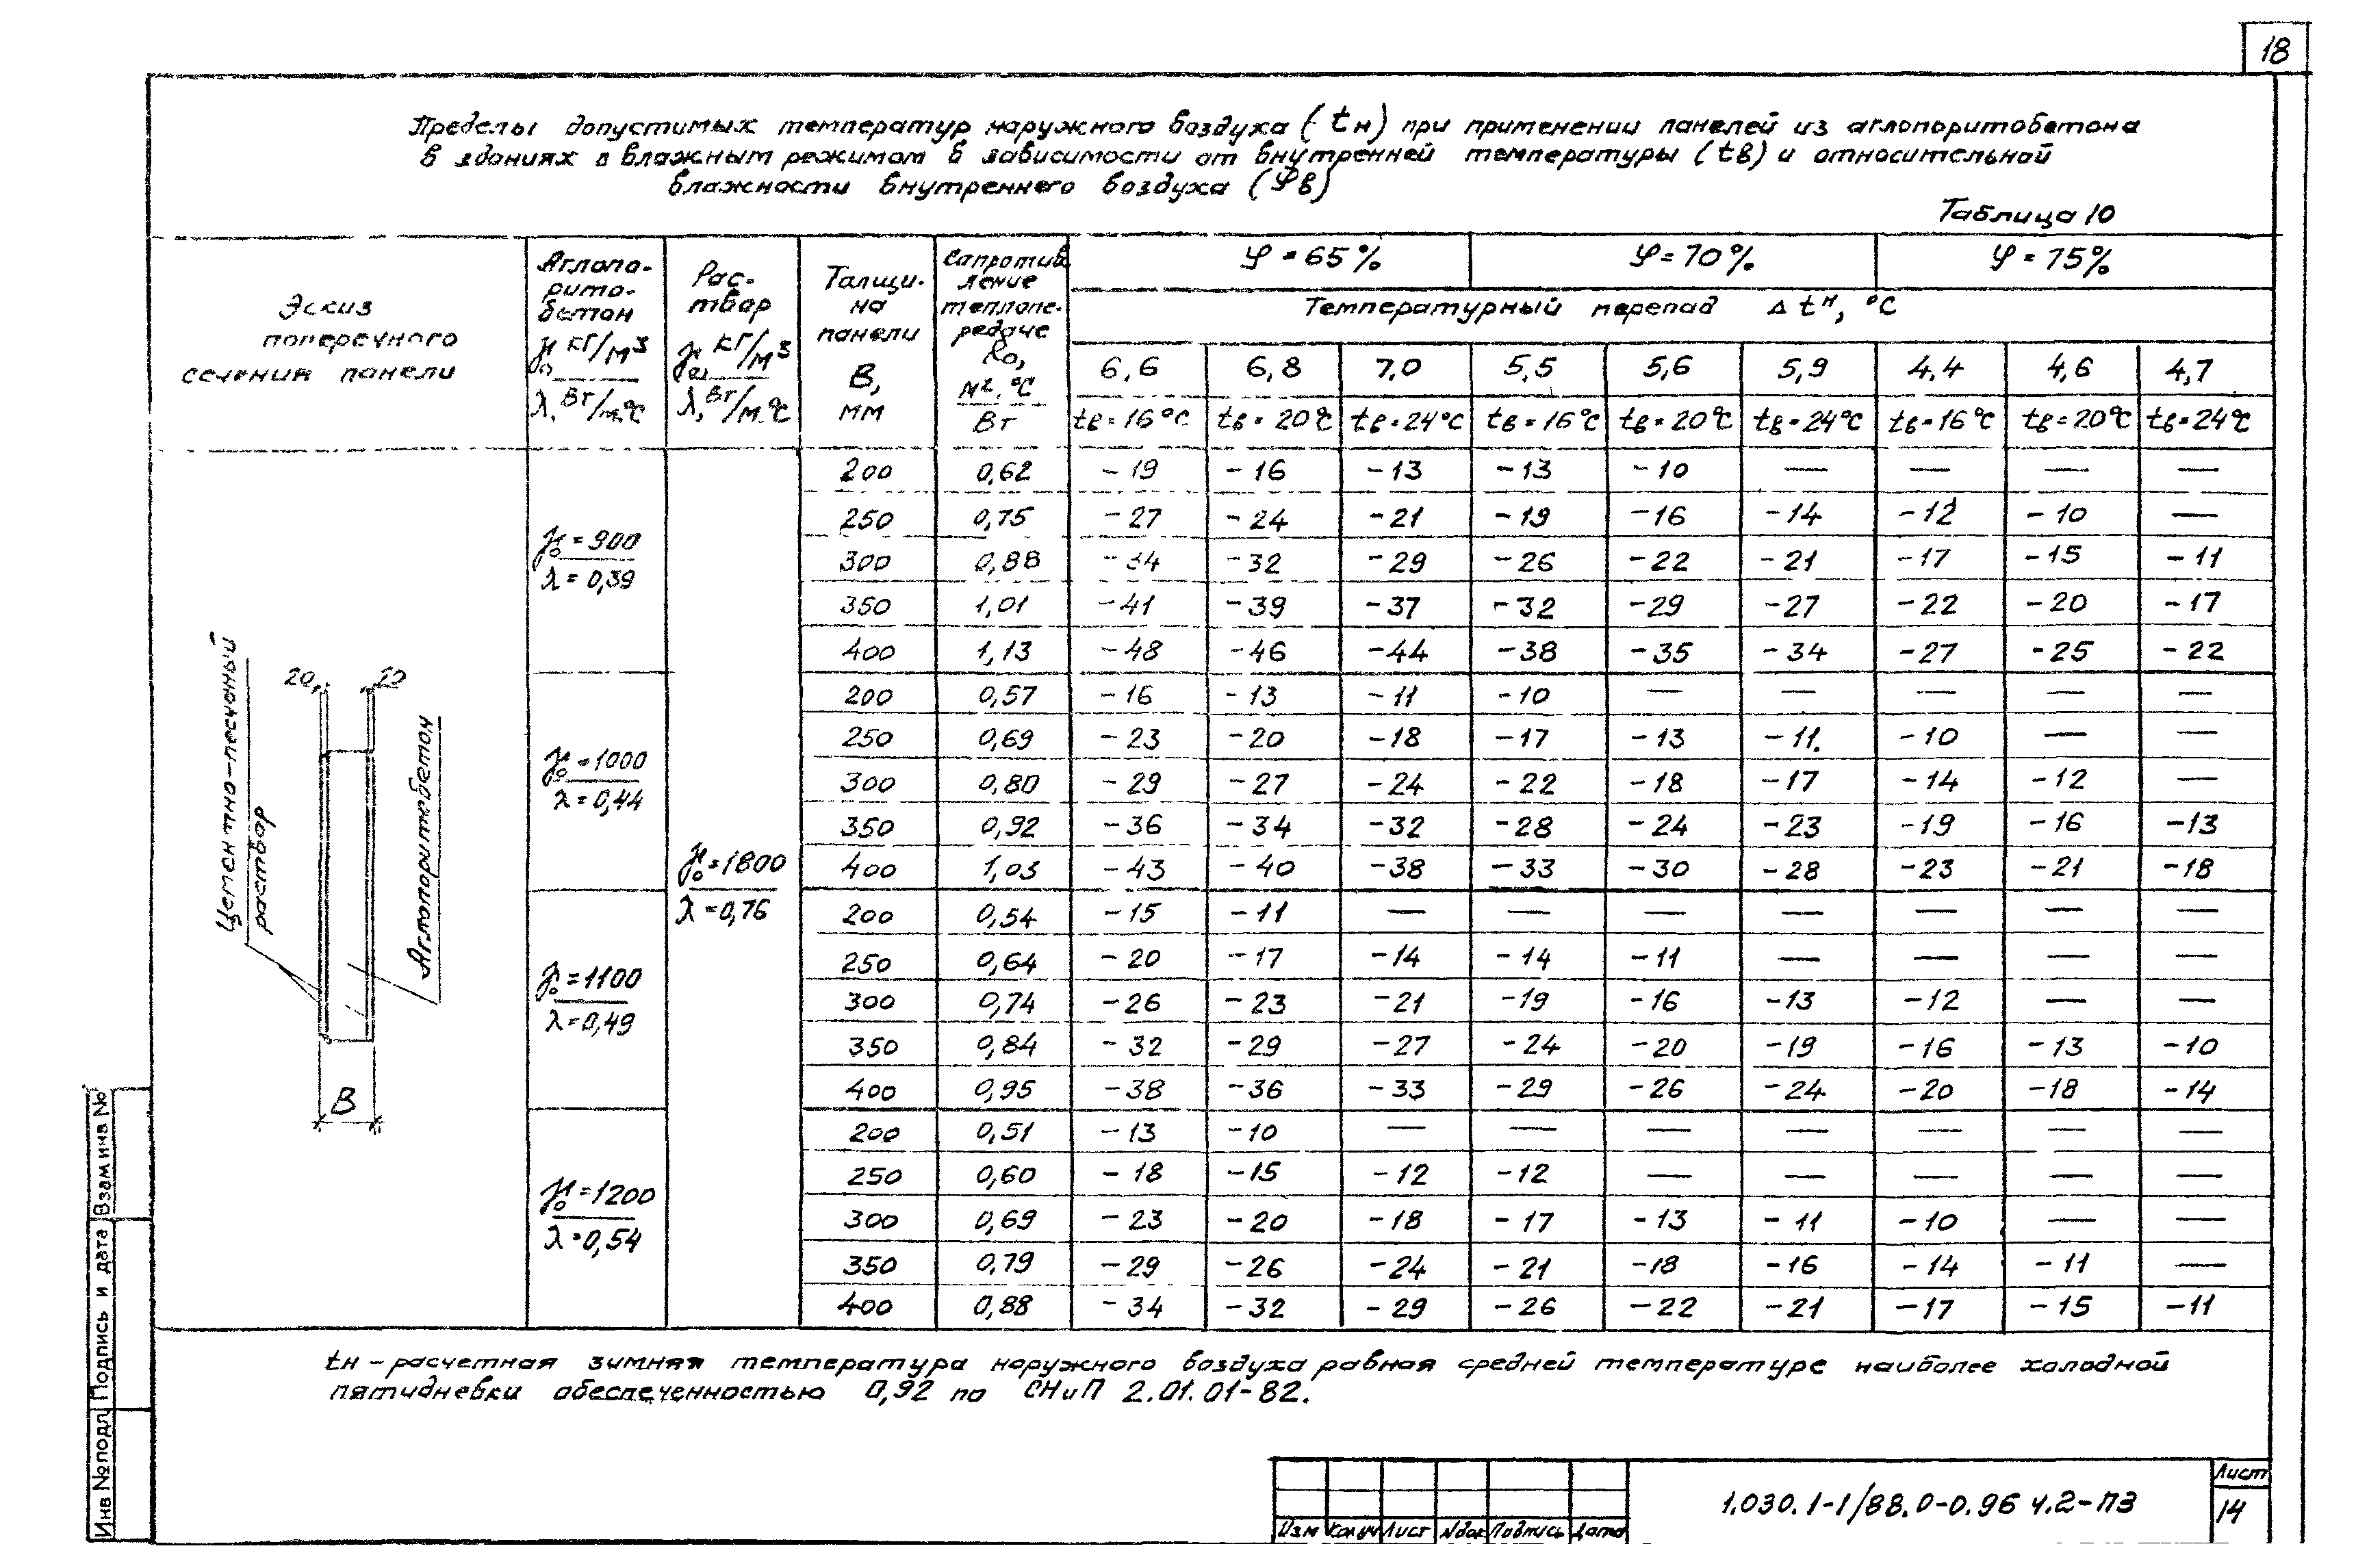 18
Пределы допустимых температур наружного воздуха (tн) при применении панелей из аглопоритобетона
в зданиях с влажным режимом в зависимости от внутренней температуры (tв) и относительной
влажности внутреннего воздуха (φв)
Таблица 10
Эскиз поперечного сечения панели
Аглопо-
рито-
бетон
γ₀, кг/м³
λ, Вт/м.°С
Рас-
твор
γ₀, кг/м³
λ, Вт/м.°С
Толщи-
на
панели
В,
мм
Сопротив
ление
теплопе-
редаче
Ro,
м².°С
Вт
φ = 65% φ = 70% φ = 75%
Температурный перепад Δtн, °С
6,6 6,8 7,0 5,5 5,6 5,9 4,4 4,6 4,7
tв=16°С tв=20°С tв=24°С tв=16°С tв=20°С tв=24°С tв=16°С tв=20°С tв=24°С
γ₀=900
λ=0,39
200 0,62 -19 -16 -13 -13 -10 — — — —
250 0,75 -27 -24 -21 -19 -16 -14 -12 -10 —
300 0,88 -34 -32 -29 -26 -22 -21 -17 -15 -11
350 1,01 -41 -39 -37 -32 -29 -27 -22 -20 -17
400 1,13 -48 -46 -44 -38 -35 -34 -27 -25 -22
γ₀=1000
λ=0,44
200 0,57 -16 -13 -11 -10 — — — — —
250 0,69 -23 -20 -18 -17 -13 -11. -10 — —
300 0,80 -29 -27 -24 -22 -18 -17 -14 -12 —
350 0,92 -36 -34 -32 -28 -24 -23 -19 -16 -13
400 1,03 -43 -40 -38 -33 -30 -28 -23 -21 -18
γ₀=1800
λ=0,76
γ₀=1100
λ=0,49
200 0,54 -15 -11 — — — — — — —
250 0,64 -20 -17 -14 -14 -11 — — — —
300 0,74 -26 -23 -21 -19 -16 -13 -12 — —
350 0,84 -32 -29 -27 -24 -20 -19 -16 -13 -10
400 0,95 -38 -36 -33 -29 -26 -24 -20 -18 -14
γ₀=1200
λ=0,54
200 0,51 -13 -10 — — — — — — —
250 0,60 -18 -15 -12 -12 — — — — —
300 0,69 -23 -20 -18 -17 -13 -11 -10 — —
350 0,79 -29 -26 -24 -21 -18 -16 -14 -11 —
400 0,88 -34 -32 -29 -26 -22 -21 -17 -15 -11
20 20
Цементно-песчаный
раствор
Аглопоритобетон
В
tн – расчетная зимняя температура наружного воздуха равная средней температуре наиболее холодной
пятидневки обеспеченностью 0,92 по СНиП 2.01.01-82.
Взам инв №
Подпись и дата
Инв №подл
Изм Кол.уч Лист Nдок Подпись Дата
1.030.1-1/88.0-0.96 ч.2-ПЗ
Лист
14